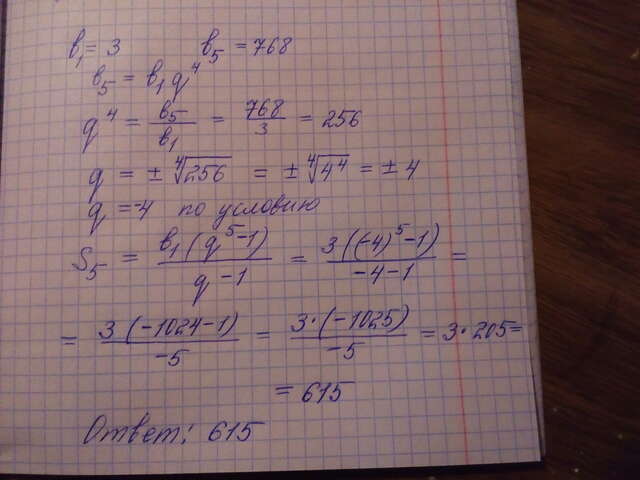 b₁ = 3 b₅ = 768
b₅ = b₁ q⁴
q⁴ = b₅/b₁ = 768/3 = 256
q = ± ⁴√256 = ± ⁴√4⁴ = ± 4
q = -4 по условию
S₅ = b₁(q⁵-1)/q-1 = 3((-4)⁵-1)/-4-1 =
= 3(-1024-1)/-5 = 3·(-1025)/-5 = 3·205 =
= 615
Ответ: 615